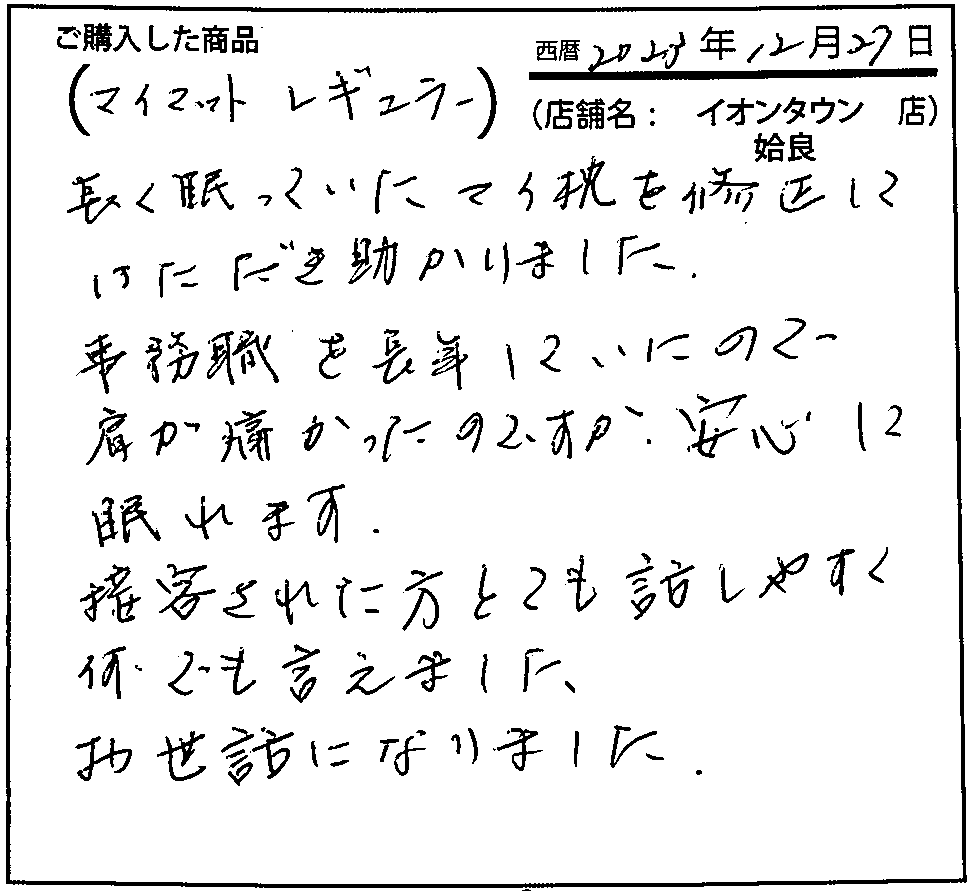 ご購入した商品
西暦 2023年12月27日
(マイマット レギュラー)
(店舗名: イオンタウン 店)
姶良
長く眠っていたマイ枕を修正して
いただき助かりました.
事務職を長年していたので
肩が痛かったのですが.安心して
眠れます.
接客された方とても話しやすく
何でも言えました、
お世話になりました.